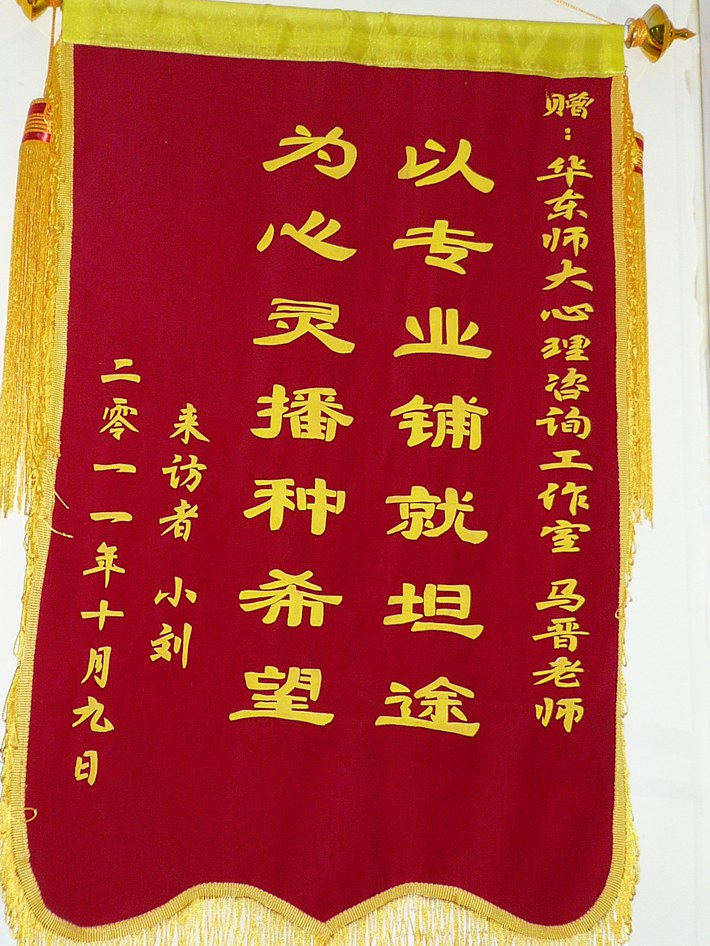 赠：华东师大心理咨询工作室 马晋老师
以专业铺就坦途
为心灵播种希望
来访者 小刘
二零一一年十月九日